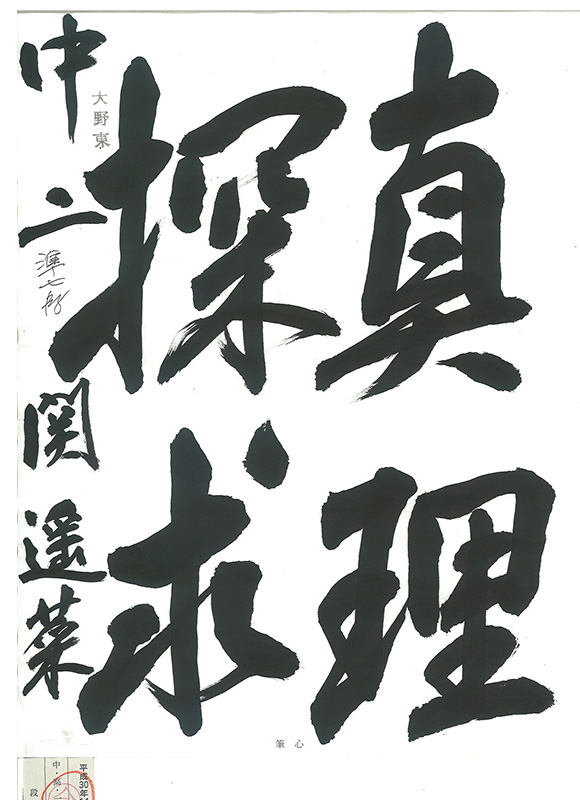 真理
探求
中二 関遥菜
大野東
準七段
筆心
平成30年
中・高・一
段